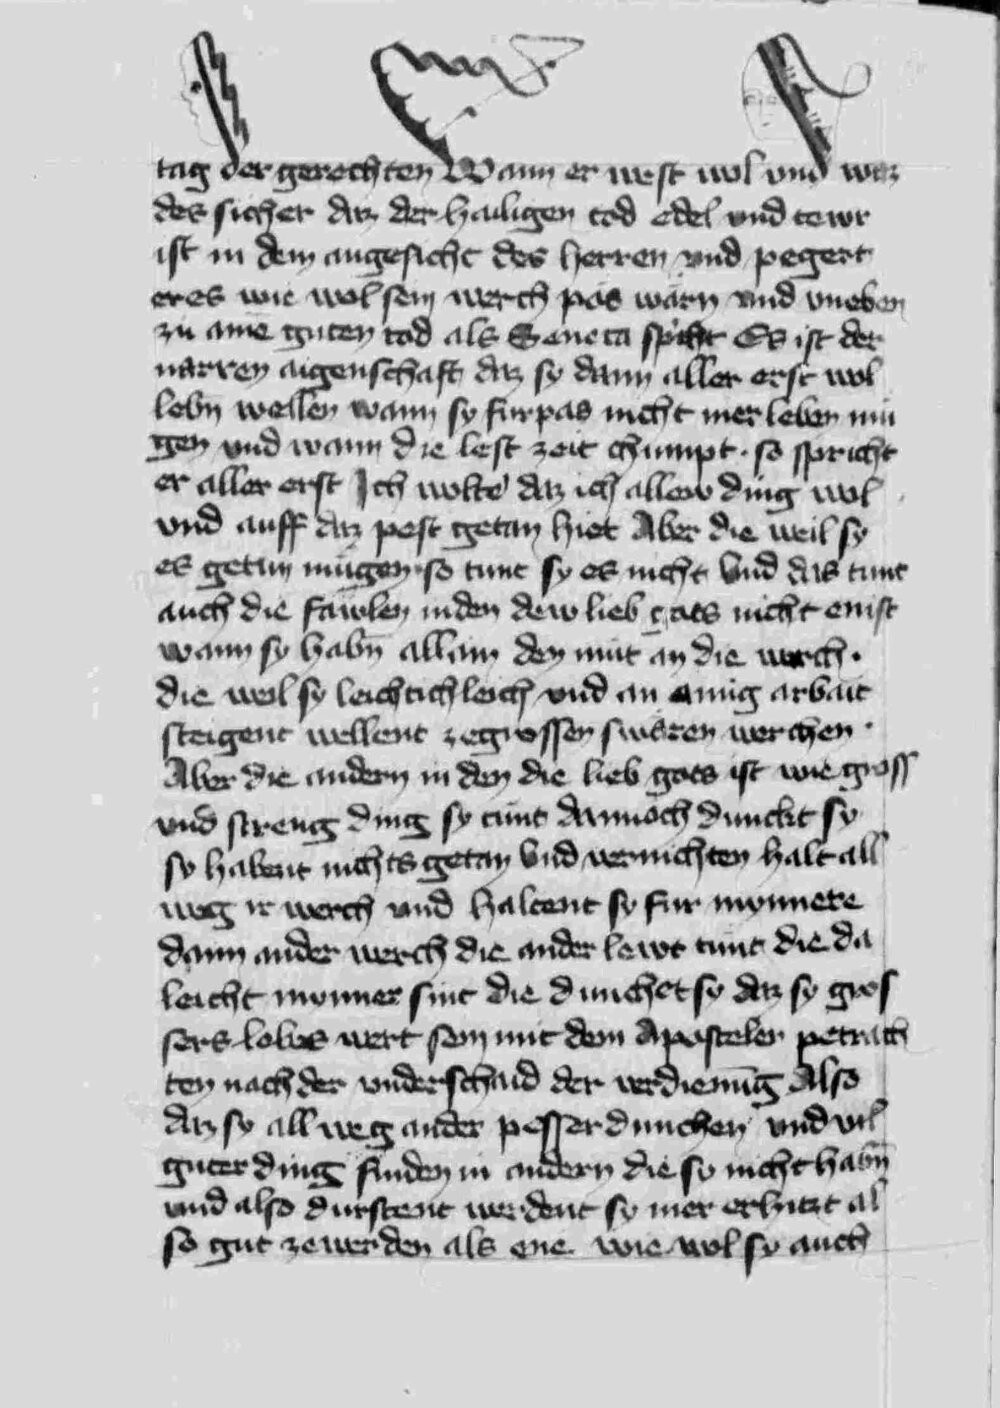 tag der gerechten Wann er west wol und waz
des sicher daz der hailigen tod edel und tewr
ist in dem angesicht des herren und pegert
er es wie wol sein werch pös wärn und uneben
zu aine guten tod als Seneca spicht Es ist der
narren aigenschaft daz sy dann aller erst wol
lebn wellen wann sy furpas nicht mer leben mu
gen und wann die lest zeit chumpt · so spricht
er aller erst Ich wolte daz ich allew ding wol
und auff daz pest getan hiet Aber die weil sy
es getun mugen · so tunt sy es nicht Und das tunt
auch die fawlen in den dew lieb gots nicht enist
wann sy habn allain den mut an die werch ·
die weil sy leichtichleich und an ainig arbait
steigent wellent ze grossen swären werchen ·
Aber die andern in den die lieb gots ist wie gross
und streng ding sy tunt dannoch dunckt sy
sy habent nichts getan Und vernichten halt all
weg ir werch und haltent sy fur mynnere
dann ander werch die ander lewt tunt die da
leicht mynner sint die dunchet sy daz sy gros
sers lobes wert sein mit dem Aposteler petrach
ten nach der underschaid der verdienung Also
daz sy all weg ander pesser dunchen und vil
guter ding finden in andern die sy nicht habn
und also durstent werdent sy mer erhitzt al
so gut ze werden als ene wie wol sy auch